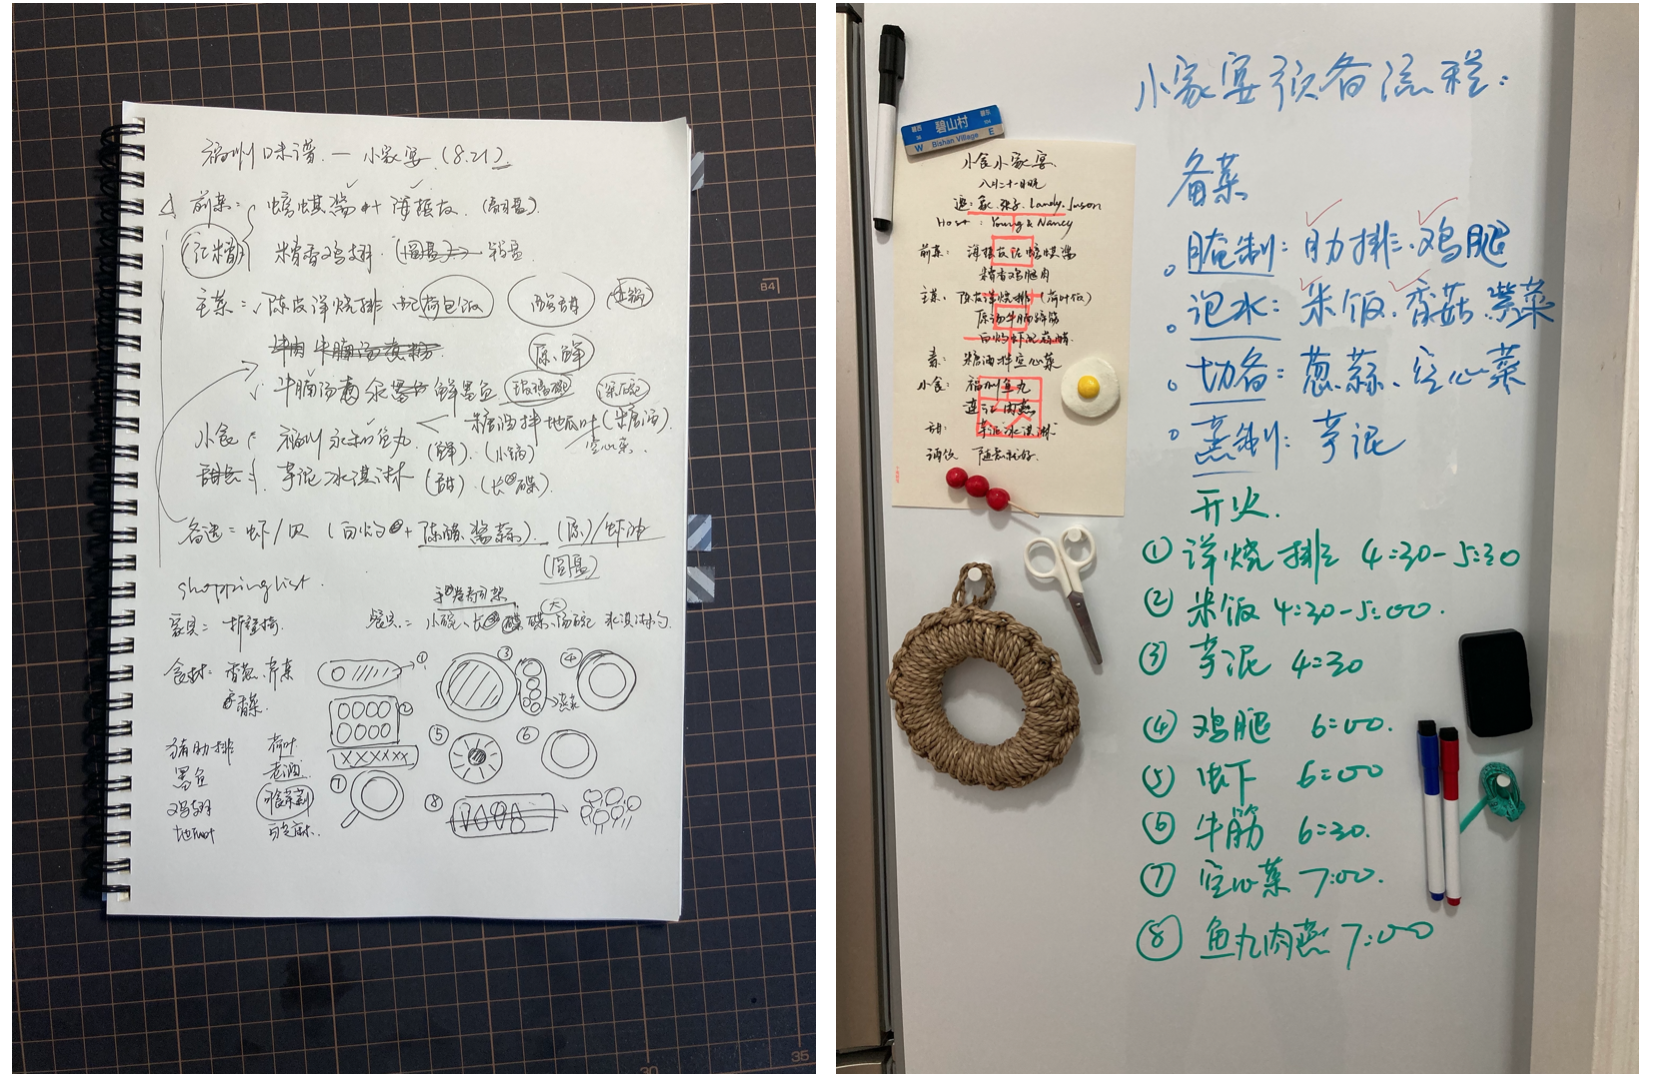 福州味谱.—小家宴(8.21)
前菜: 蟛蜞酱 + 海蜇皮.
红糟
糟香鸡翅.
主菜: 陈皮洋烧排 配荷包饭
陈.鲜
牛腩汤 鲜墨鱼
糖油拌地瓜叶(糖油).
空心菜.
小食: 福州永和鱼丸. (鲜).(小锅)
甜品: 芋泥冰淇淋 (甜).
备选= 虾/贝 (白灼+陈醋.酱蒜). /虾油
(圆盘)
shopping list.
家具= 折叠椅. 餐具.= 小碗、汤碗 冰淇淋勺
大
食材: 香葱.芹菜
香菜.
① ② ③ ④ ⑤ ⑥ ⑦ ⑧
猪肋排 荷叶
墨鱼 老酒
鸡翅
地瓜叶 白芝麻.
84
30
35
碧山村
Bishan Village
W E
小食小家宴.
八月二十一日晚
Host: Young & Nancy
前菜: 海蜇皮佐蟛蜞酱
糟香鸡腿肉
主菜: 陈皮洋烧排(荷叶饭)
原汤牛腩蹄筋
白灼虾配蒜醋.
素: 糖油拌空心菜
小食: 福州鱼丸
连江肉燕
甜: 芋泥冰淇淋
酒饮 随意就好.
小家宴预备流程:
备菜
腌制: 肋排.鸡腿
泡水: 米饭.香菇.紫菜
切备: 葱蒜、空心菜
蒸制: 芋泥
开火.
① 洋烧排 4:30-5:30
② 米饭 4:30-5:00.
③ 芋泥 4:30
④ 鸡腿 6:00.
⑤ 虾 6:00
⑥ 牛筋 6:30.
⑦ 空心菜 7:00.
⑧ 鱼丸肉燕 7:00